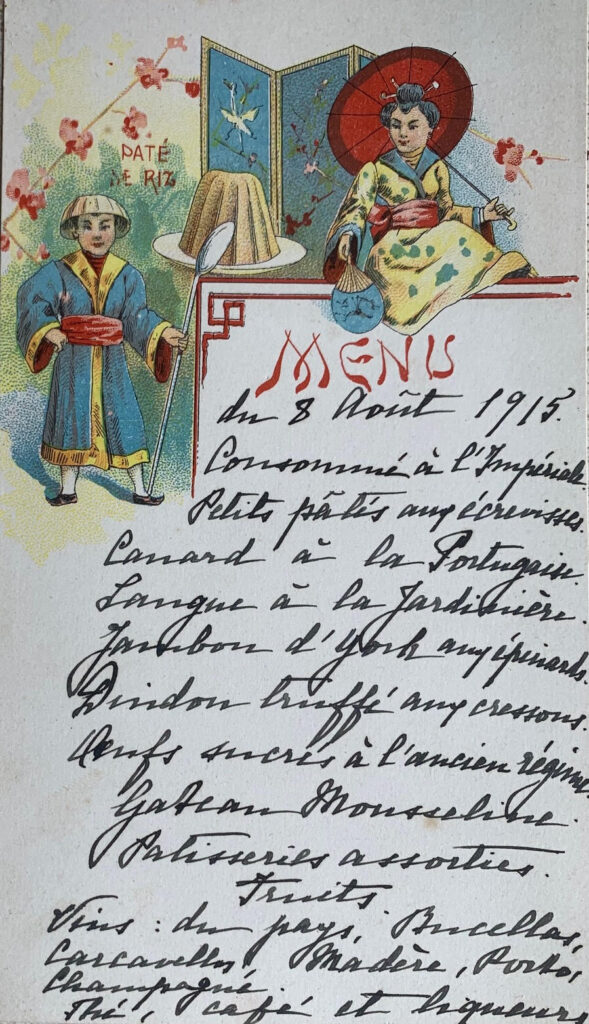 PATÉ
DE RIZ
MENU
du 8 Août 1915.
Consommé à l'Impériale.
Petits pâtés aux écrevisses.
Canard à la Portugaise.
Langue à la Jardinière.
Jambon d'York aux épinards.
Dindon truffé aux cressons.
Œufs sucrés à l'ancien régime.
Gateau Mousseline.
Patisseries assorties.
Fruits
Vins : du pays, Bucellas,
Carcavellos, Madère, Porto,
Champagne.
Thé, café et liqueurs